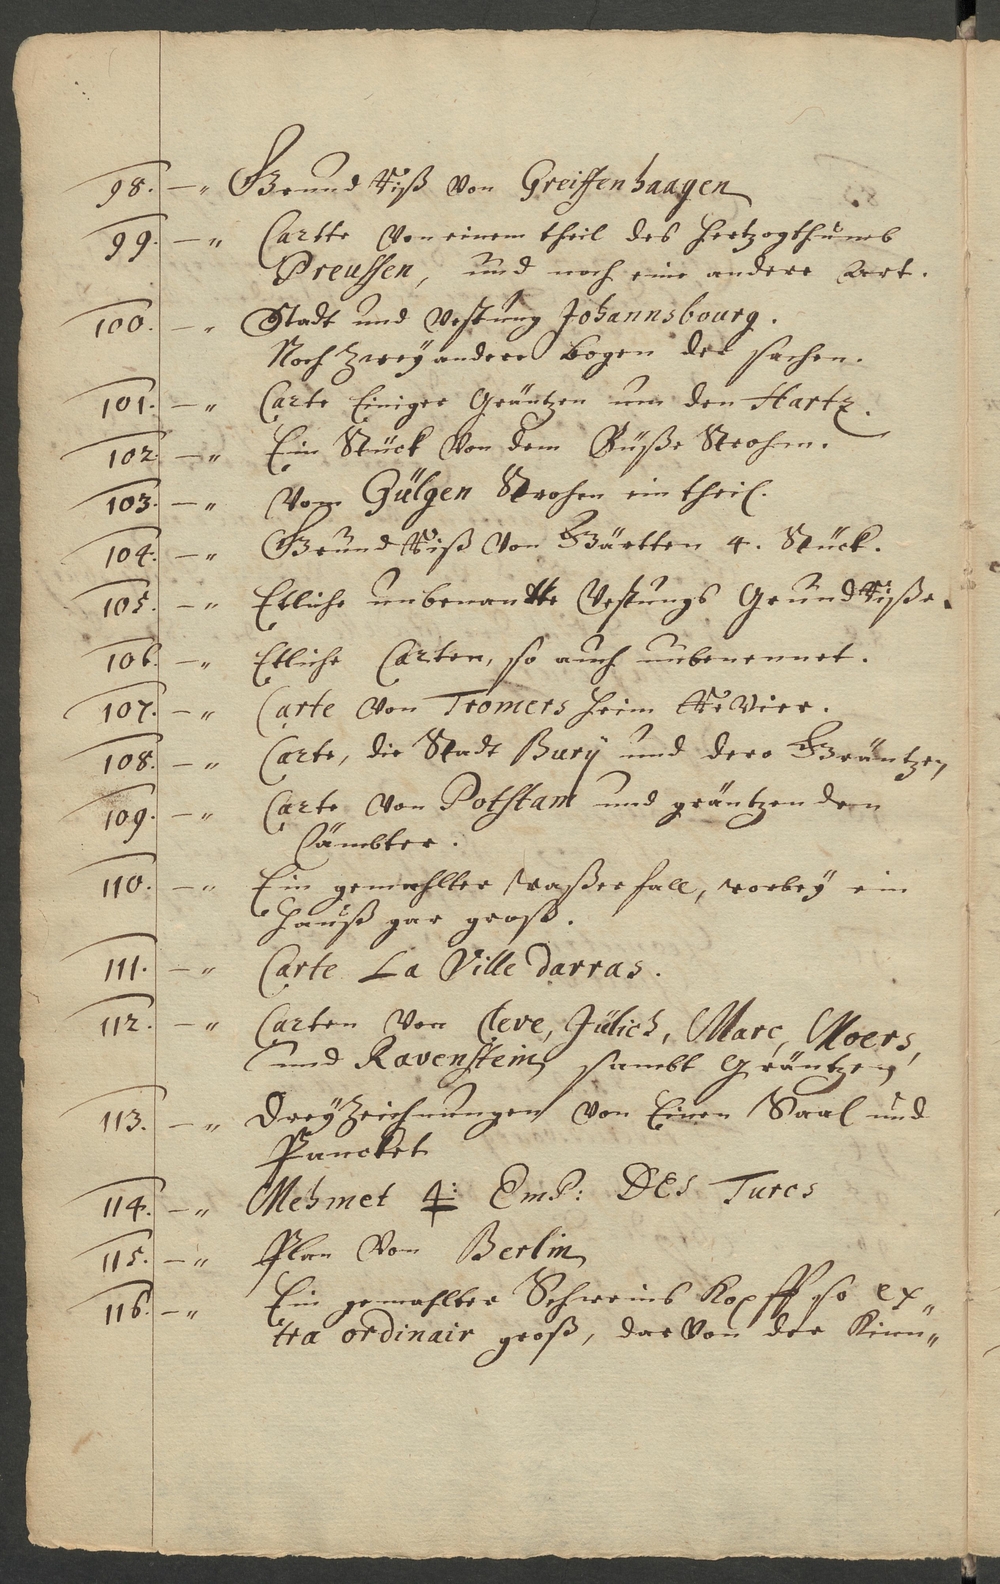 98. — „ Grund Riß von Greiffenhaagen
99. — „ Cartte von einem theil des Hertzogthumbs
Preussen, und noch eine andere Art.
100. — „ Stadt und Vestung Johannsbourg.
Noch zweÿ andere bogen der sachen.
101. — „ Carte Einiger Gräntzen um den Hartz.
102. — „ Ein Stück von dem Strohm.
103. — „ Vom Gülgen Strohm ein theil.
104. — „ Grund Riß von Gärtten 4. Stück.
105. — „ Etliche unbenantte Vestungs Grund Riße.
106. — „ Etliche Carten, so auch unbenennet.
107. — „ Carte von Tromersheim Revier.
108. — „ Carte, die Stadt Burÿ und dero Gräntzen
109. — „ Carte von Potstam und gräntzenden
Aämbter.
110. — „ Ein gemahlter waßerfall, worbeÿ ein
Hauß gar groß.
111. — „ Carte La Ville Darras.
112. — „ Carten von Cleve, Jülich, Marc, Moers,
und Ravenstein sambt Gräntzen
113. — „ Dreÿ Zeichnungen von Einen Saal und
Pancket
114. — „ Mehmet 4: Emp: DES Turcs
115. — „ Plan von Berlin
116. — „ Ein gemahlter Schweins Kopff so ex„
tra ordinair groß, darvon der Kinn„